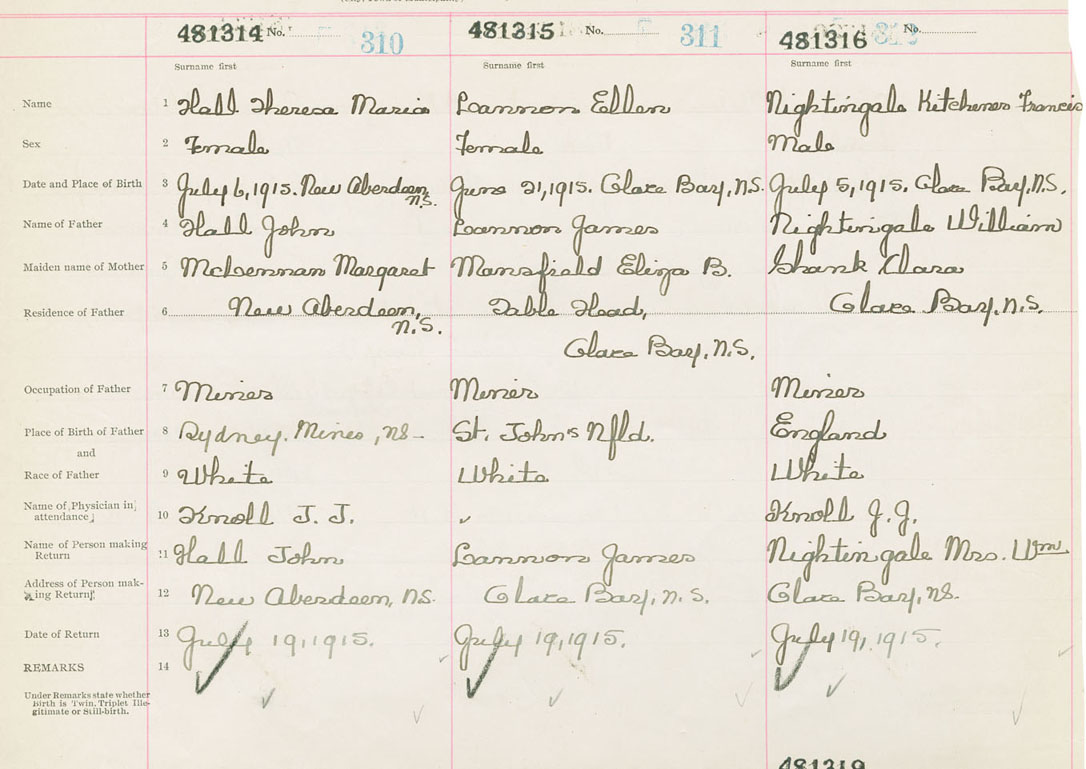 481314 No. 310 481315 No. 311 481316 No. 312
Surname first Surname first Surname first
Name 1 Hall Theresa Maria Lannon Ellen Nightingale Kitchener Francis
Sex 2 Female Female Male
Date and Place of Birth 3 July 6, 1915. New Aberdeen, N.S. June 21, 1915. Glace Bay, N.S. July 5, 1915. Glace Bay, N.S.
Name of Father 4 Hall John Lannon James Nightingale William
Maiden name of Mother 5 McLennan Margaret Mansfield Eliza B. Shank Clara
Residence of Father 6 New Aberdeen, Table Head, Glace Bay, N.S.
N.S. Glace Bay, N.S.
Occupation of Father 7 Miner Miner Miner
Place of Birth of Father 8 Sydney. Mines, NS- St. John's Nfld. England
and
Race of Father 9 White White White
Name of Physician in
attendance 10 Knoll J. J. Knoll J. J.
Name of Person making
Return 11 Hall John Lannon James Nightingale Mrs. Wm
Address of Person mak-
ing Return 12 New Aberdeen, NS. Glace Bay, N.S. Glace Bay, NS.
Date of Return 13 July 19, 1915. July 19, 1915. July 19, 1915.
REMARKS 14
Under Remarks state whether
Birth is Twin, Triplet Ille-
gitimate or Still-birth.
481319